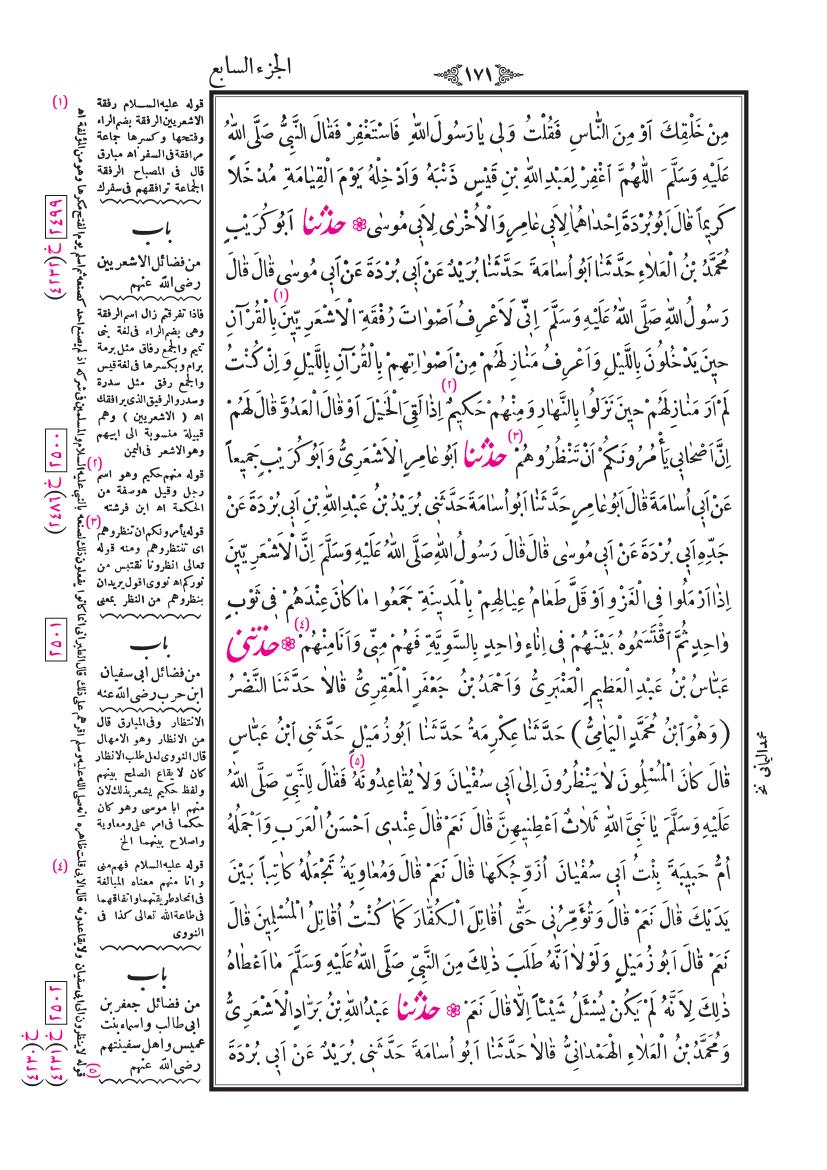 ١٧١
الجزء السابع
مِنْ خَلْقِكَ اَوْ مِنَ النَّاسِ فَقُلْتُ وَلِى يَا رَسُولَ اللهِ فَاسْتَغْفِرْ فَقَالَ النَّبِىُّ صَلَّى اللهُ
عَلَيْهِ وَسَلَّمَ اَللّٰهُمَّ اغْفِرْ لِعَبْدِ اللهِ بْنِ قَيْسٍ ذَنْبَهُ وَاَدْخِلْهُ يَوْمَ الْقِيَامَةِ مُدْخَلاً
كَرِيماً قَالَ اَبُو بُرْدَةَ اِحْدَاهُمَا لِاَبِى عَامِرٍ وَالْاُخْرٰى لِاَبِى مُوسٰى ❁ حدثنا اَبُو كُرَيْبٍ
مُحَمَّدُ بْنُ الْعَلَاءِ حَدَّثَنَا اَبُو اُسَامَةَ حَدَّثَنَا بُرَيْدٌ عَنْ اَبِى بُرْدَةَ عَنْ اَبِى مُوسٰى قَالَ قَالَ
رَسُولُ اللهِ صَلَّى اللهُ عَلَيْهِ وَسَلَّمَ اِنِّى لَاَعْرِفُ اَصْوَاتَ رُفْقَةِ الْاَشْعَرِيِّينَ (١) بِالْقُرْآنِ
حِينَ يَدْخُلُونَ بِاللَّيْلِ وَاَعْرِفُ مَنَازِلَهُمْ مِنْ اَصْوَاتِهِمْ بِالْقُرْآنِ بِاللَّيْلِ وَاِنْ كُنْتُ
لَمْ اَرَ مَنَازِلَهُمْ حِينَ نَزَلُوا بِالنَّهَارِ وَمِنْهُمْ حَكِيمٌ (٢) اِذَا لَقِىَ الْخَيْلَ اَوْ قَالَ الْعَدُوَّ قَالَ لَهُمْ
اِنَّ اَصْحَابِى يَأْمُرُونَكُمْ اَنْ تَنْظُرُوهُمْ (٣) حدثنا اَبُو عَامِرٍ الْاَشْعَرِىُّ وَاَبُو كُرَيْبٍ جَمِيعاً
عَنْ اَبِى اُسَامَةَ قَالَ اَبُو عَامِرٍ حَدَّثَنَا اَبُو اُسَامَةَ حَدَّثَنِى بُرَيْدُ بْنُ عَبْدِ اللهِ بْنِ اَبِى بُرْدَةَ عَنْ
جَدِّهِ اَبِى بُرْدَةَ عَنْ اَبِى مُوسٰى قَالَ قَالَ رَسُولُ اللهِ صَلَّى اللهُ عَلَيْهِ وَسَلَّمَ اِنَّ الْاَشْعَرِيِّينَ
اِذَا اَرْمَلُوا فِى الْغَزْوِ اَوْ قَلَّ طَعَامُ عِيَالِهِمْ بِالْمَدِينَةِ جَمَعُوا مَا كَانَ عِنْدَهُمْ فِى ثَوْبٍ
وَاحِدٍ ثُمَّ اقْتَسَمُوهُ بَيْنَهُمْ فِى اِنَاءٍ وَاحِدٍ بِالسَّوِيَّةِ فَهُمْ مِنِّى وَاَنَا مِنْهُمْ (٤) ❁ حدثنى
عَبَّاسُ بْنُ عَبْدِ الْعَظِيمِ الْعَنْبَرِىُّ وَاَحْمَدُ بْنُ جَعْفَرٍ الْمَعْقِرِىُّ قَالَا حَدَّثَنَا النَّضْرُ
( وَهُوَ ابْنُ مُحَمَّدٍ الْيَمَامِىُّ ) حَدَّثَنَا عِكْرِمَةُ حَدَّثَنَا اَبُو زُمَيْلٍ حَدَّثَنِى ابْنُ عَبَّاسٍ
قَالَ كَانَ الْمُسْلِمُونَ لَا يَنْظُرُونَ اِلٰى اَبِى سُفْيَانَ وَلَا يُقَاعِدُونَهُ (٥) فَقَالَ لِلنَّبِىِّ صَلَّى اللهُ
عَلَيْهِ وَسَلَّمَ يَا نَبِىَّ اللهِ ثَلَاثٌ اَعْطِنِيهِنَّ قَالَ نَعَمْ قَالَ عِنْدِى اَحْسَنُ الْعَرَبِ وَاَجْمَلُهُ
اُمُّ حَبِيبَةَ بِنْتُ اَبِى سُفْيَانَ اُزَوِّجُكَهَا قَالَ نَعَمْ قَالَ وَمُعَاوِيَةُ تَجْعَلُهُ كَاتِباً بَيْنَ
يَدَيْكَ قَالَ نَعَمْ قَالَ وَتُؤَمِّرُنِى حَتّٰى اُقَاتِلَ الْكُفَّارَ كَمَا كُنْتُ اُقَاتِلُ الْمُسْلِمِينَ قَالَ
نَعَمْ قَالَ اَبُو زُمَيْلٍ وَلَوْلَا اَنَّهُ طَلَبَ ذٰلِكَ مِنَ النَّبِىِّ صَلَّى اللهُ عَلَيْهِ وَسَلَّمَ مَا اَعْطَاهُ
ذٰلِكَ لِاَنَّهُ لَمْ يَكُنْ يُسْئَلُ شَيْئاً اِلَّا قَالَ نَعَمْ ❁ حدثنا عَبْدُ اللهِ بْنُ بَرَّادٍ الْاَشْعَرِىُّ
وَمُحَمَّدُ بْنُ الْعَلَاءِ الْهَمْدَانِىُّ قَالَا حَدَّثَنَا اَبُو اُسَامَةَ حَدَّثَنِى بُرَيْدٌ عَنْ اَبِى بُرْدَةَ
(١)
قوله عليه السلام رفقة
الاشعريين الرفقة بضم الراء
وفتحها وكسرها جماعة
مرافقة فى السفر اه مبارق
قال فى المصباح الرفقة
الجماعة ترافقهم فى سفرك
باب
من فضائل الاشعريين
رضى الله عنهم
فاذا تفرقتم زال اسم الرفقة
وهى بضم الراء فى لغة بنى
تميم والجمع رفاق مثل برمة
برام وبكسرها فى لغة قيس
والجمع رفق مثل سدرة
وسدر والرفيق الذى يرافقك
اه ( الاشعريين ) وهم
قبيلة منسوبة الى ابيهم
وهو الاشعر فى اليمن
(٢)
قوله منهم حكيم وهو اسم
رجل وقيل هو صفة من
الحكمة اه ابن فرشته
(٣)
قوله يأمرونكم ان تنظروهم
اى تنتظروهم ومنه قوله
تعالى انظرونا نقتبس من
نوركم اه نووى اقول يريد ان
ينظروهم من النظر بمعنى
باب
من فضائل ابى سفيان
ابن حرب رضى الله عنه
الانتظار وفى المبارق قال
من الانظار وهو الامهال
قال النووى لعل طلب الانظار
كان لايقاع الصلح بينهم
ولفظ حكيم يشعر بذلك لان
منهم ابا موسى وهو كان
حكما فى امر على ومعاوية
واصلاح بينهما الخ
(٤)
قوله عليه السلام فهم منى
وانا منهم معناه المبالغة
فى اتحاد طريقتهما واتفاقهما
فى طاعة الله تعالى كذا فى
النووى
باب
من فضائل جعفر بن
ابى طالب واسماء بنت
عميس واهل سفينتهم
رضى الله عنهم
(٥)
قوله لاينظرون الى ابى سفيان ولايقاعدونه
٢٤٩٩
٢٥٠٠
٢٥٠١
٢٥٠٢